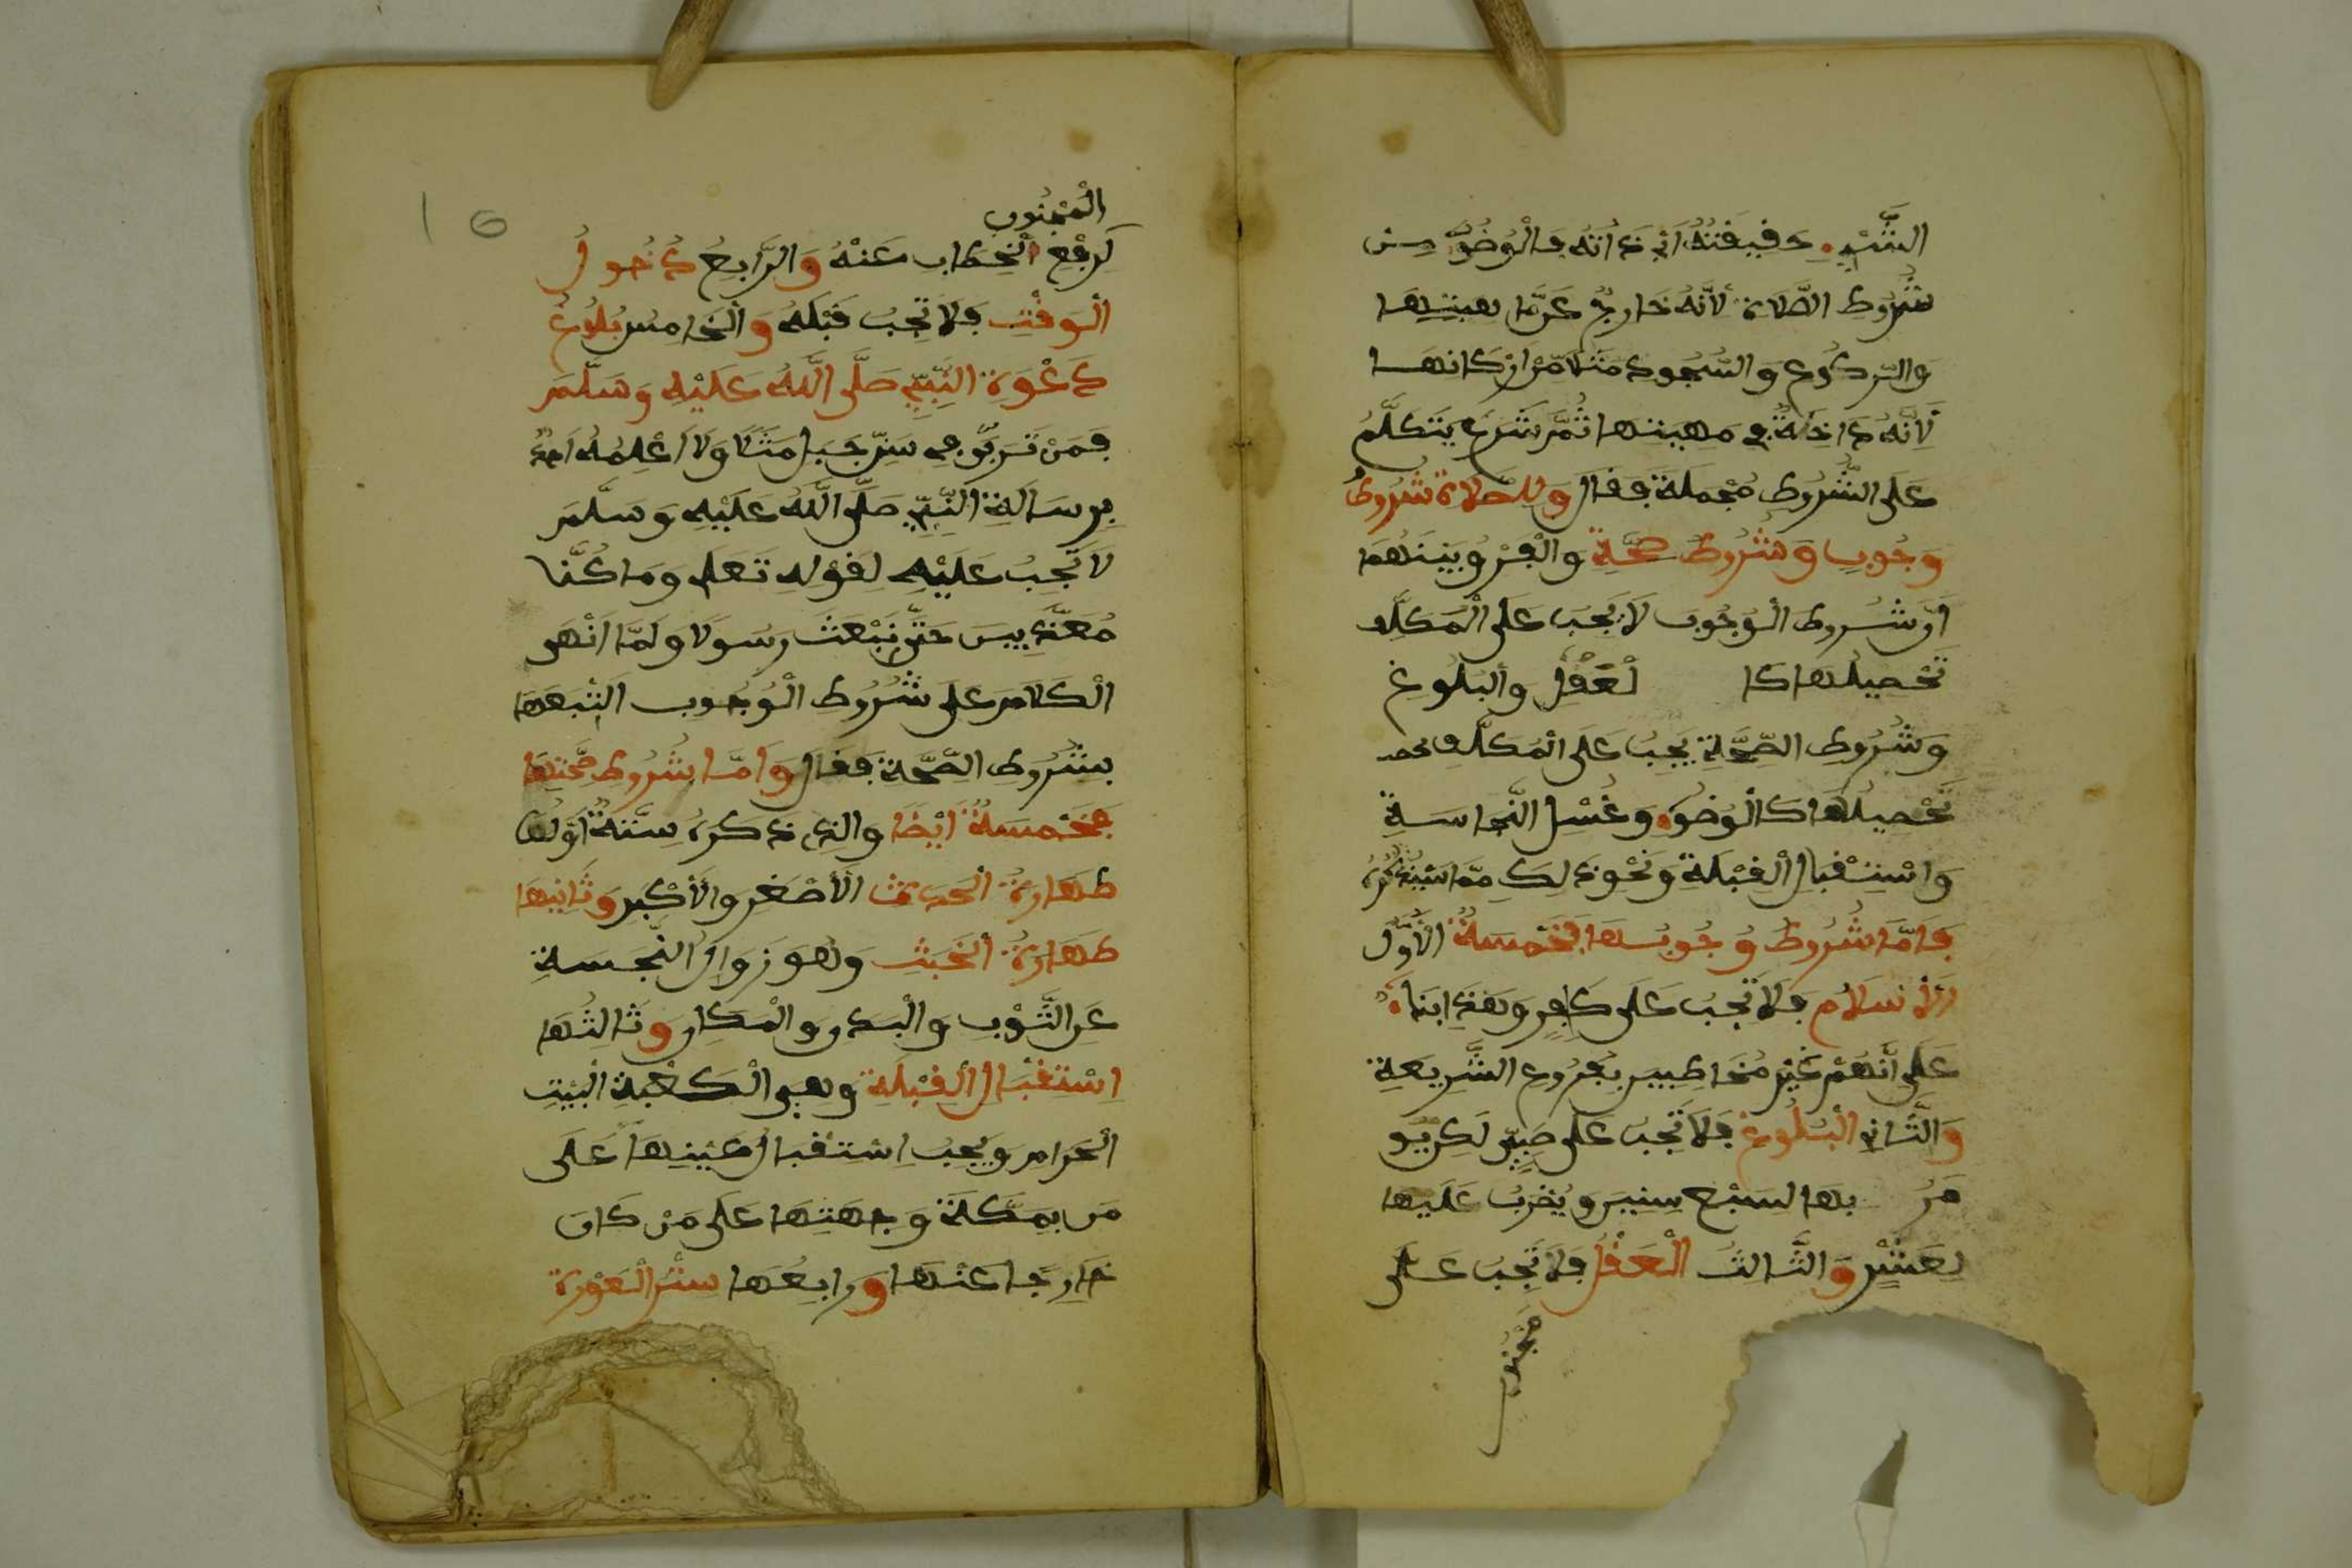 الشَّيْءِ حقيقته اي ذاته فالوضوء من
شروط الصلاة لأنه خارج عن ماهيتها
والركوع والسجود مثلا من اركانها
لانه داخلة في ماهيتها ثُمَّ شرع يتكلَّمُ
على الشروط مجملة فقال وللصلاة شروطُ
وجوبٍ وشروطُ صحَّةٍ والفرق بينهما
أن شروط الوجوب لا يجب على المكلف
تحصيلها كا لعَقْلِ والبلوغ
وشروط الصِّحَّةِ يجبُ على المكلَّف
تحصيلها كالوضوء وغسل النجاسة
واستقبال القبلة ونحو ذلك مما سيذكره
فامّا شروطُ وجوبها فخمسةٌ الأوَّل
الإسلام فلا تجب على كافر وهذا بناءً
على أنهم غير مخاطبين بفروع الشريعة
والثَّاني البلوغ فلا تجب على صبيّ لكن يو
مر بها لسبع سنين ويضرب عليها
لعشر والثالث العقل فلا تجب على
مجنون
المجنون
لرفع الخطاب عنه والرابع دخول
الوقت فلا تجب قبله والخامس بلوغ
دعوة النبيّ صلّى اللّه عليه وسلّم
فمن تربى في سن جبل مثلا ولا أعلمه احدٌ
برسالة النبيّ صلّى اللّه عليه وسلّم
لا تجب عليه لقوله تعلى وما كنّا
معذبين حتّى نبعث رسولا ولمّا انهى
الكلام على شروط الوجوب اتبعها
بشروط الصِّحَّة فقال وامّا شروط صحّتها
فخمسةٌ ايضا والذي ذكره ستّةٌ اوّلها
طهارةُ الحدث الأصغر والأكبر وثانيها
طهارةُ الخبث وهو زوال النّجسة
عن الثَّوب والبدن والمكان وثالثها
استقبال القبلة وهي الكعبة البيت
الحرام ويجب استقبال عينها على
من بمكة وجهتها على من كان
خارجا عنها ورابعها ستر العورة